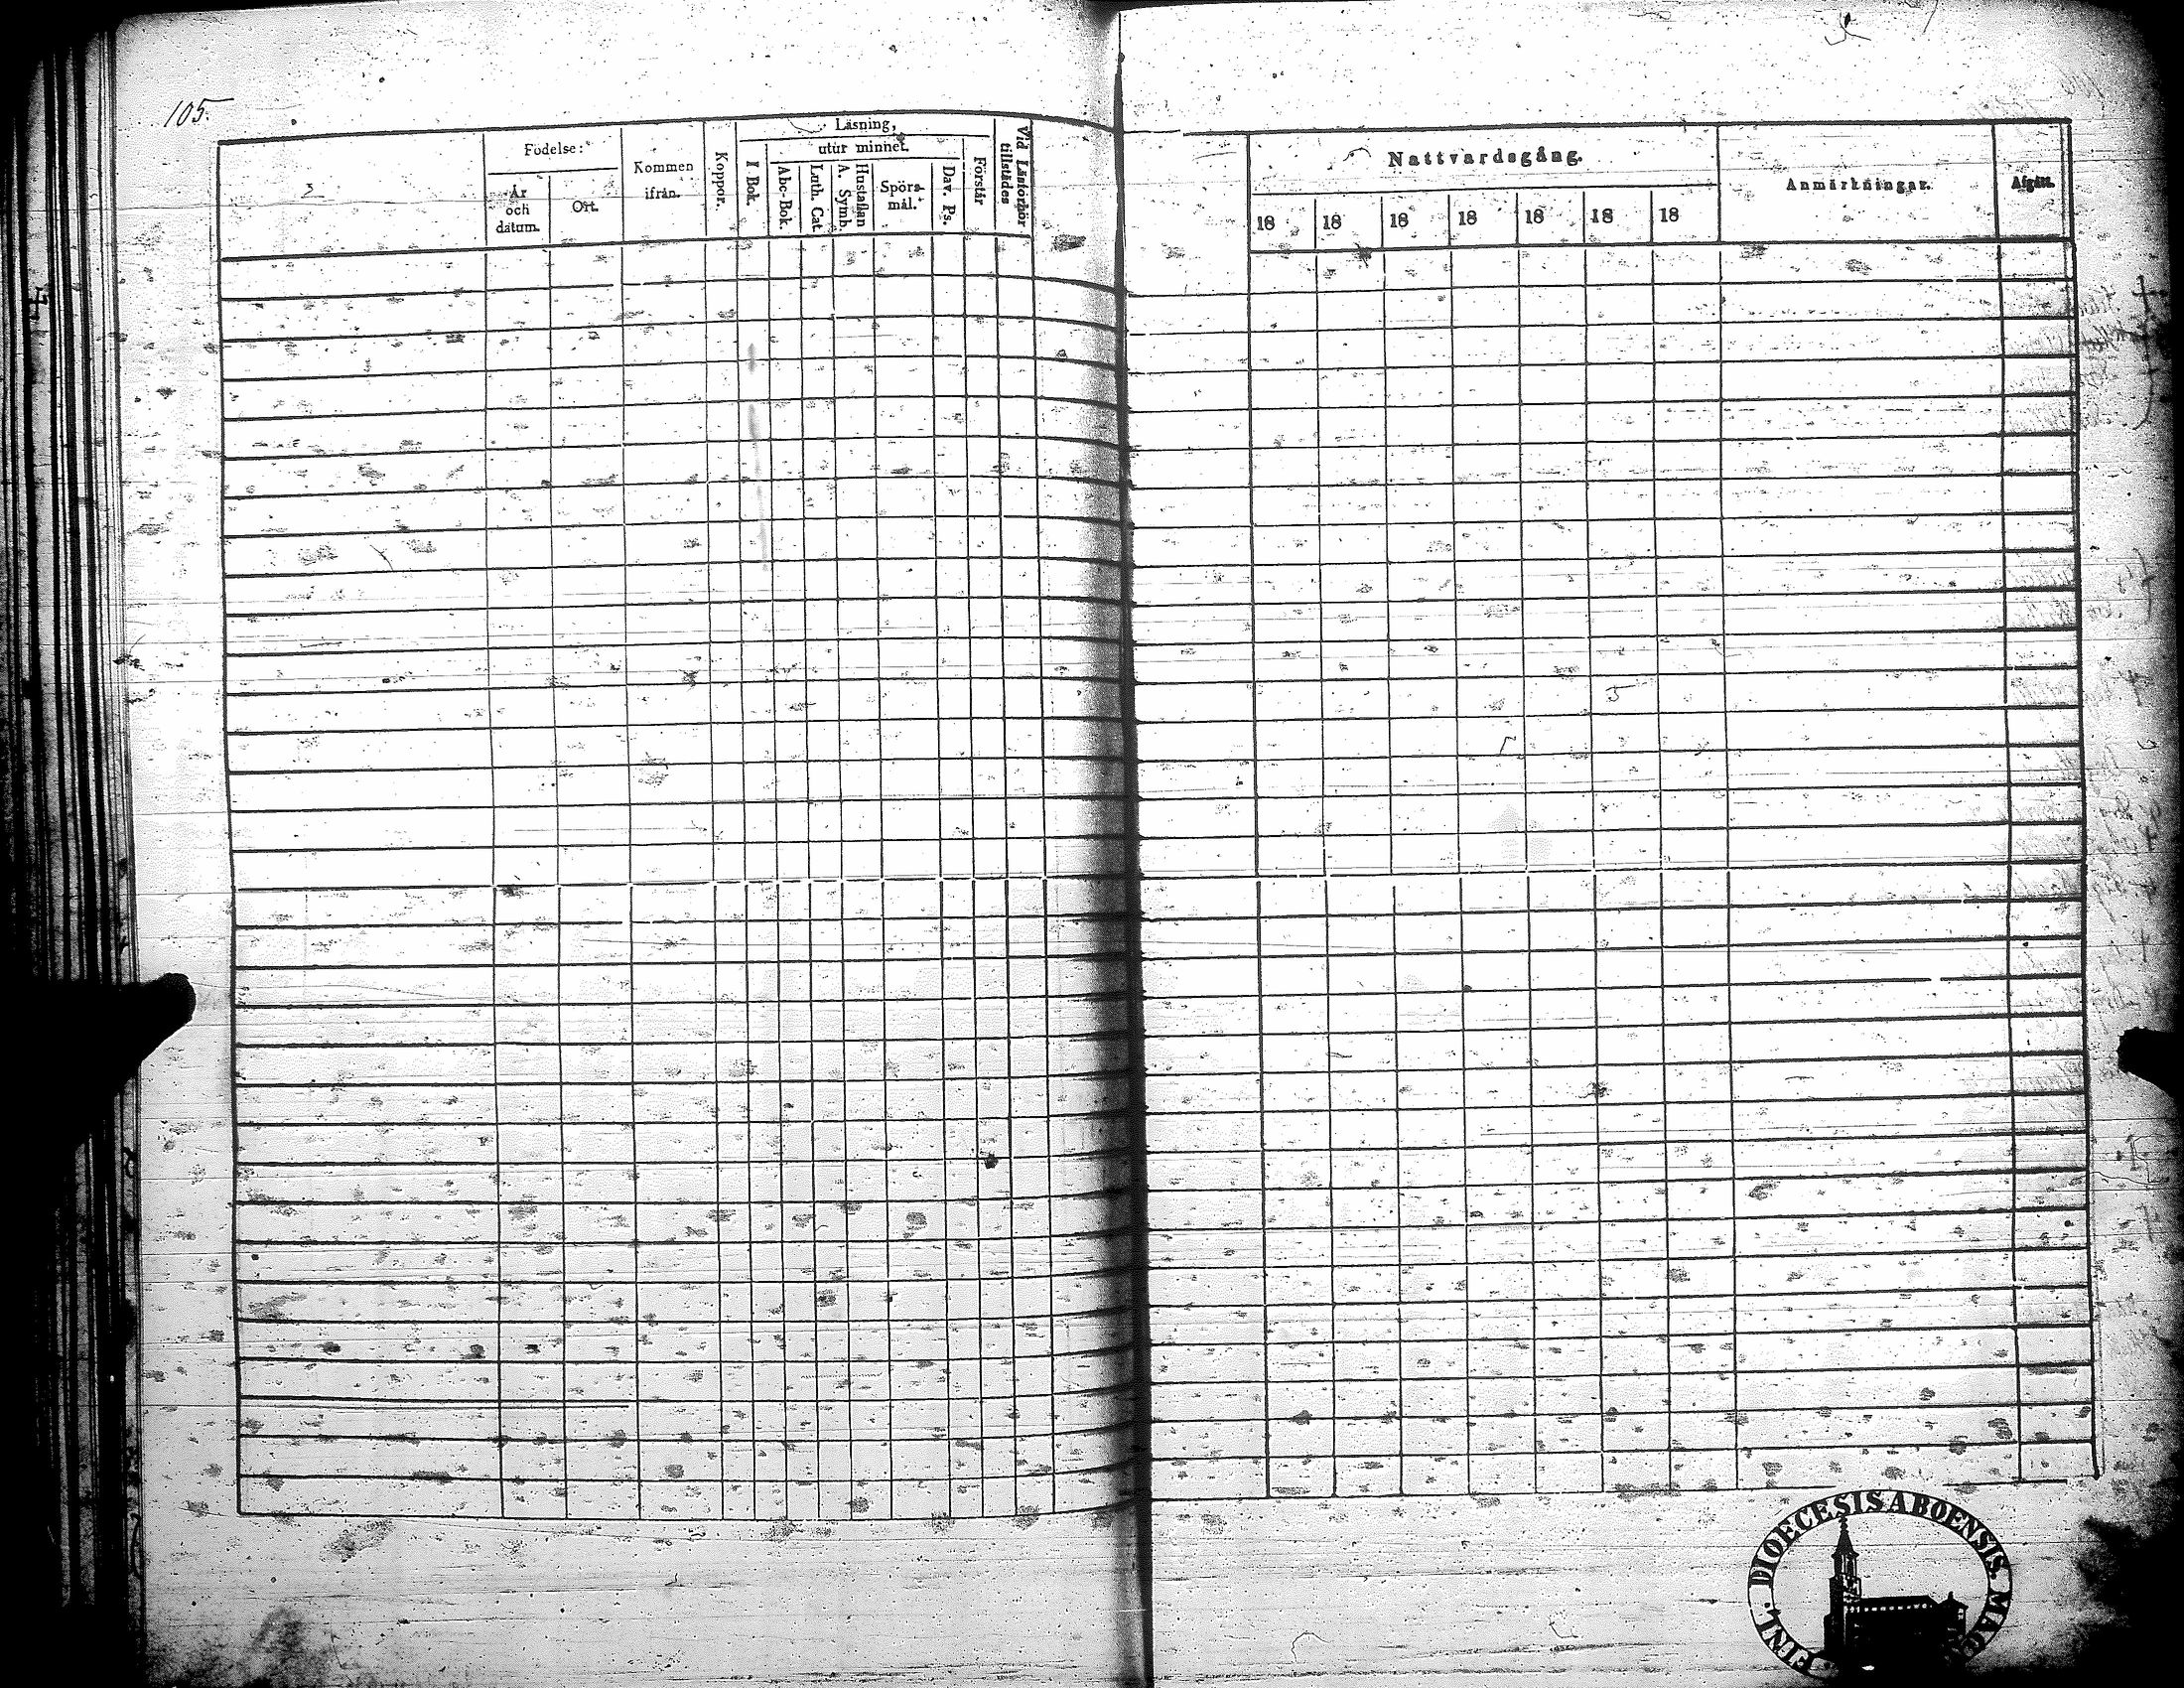 105.
Födelse:
År
och
datum.
Ort.
Kommen
ifrån.
Koppor.
Läsning,
utur minnet.
I Bok.
Abc-Bok.
Luth. Cat.
A. Symb.
Hustaflan
Spörs-
mål.
Dav. Ps.
Förstår
Vid Läsförhör
tillstädes
Nattvardsgång.
18 18 18 18 18 18 18
Anmärkningar.
Afgått.
FINL. DIOECESIS ABOENSIS. MAG